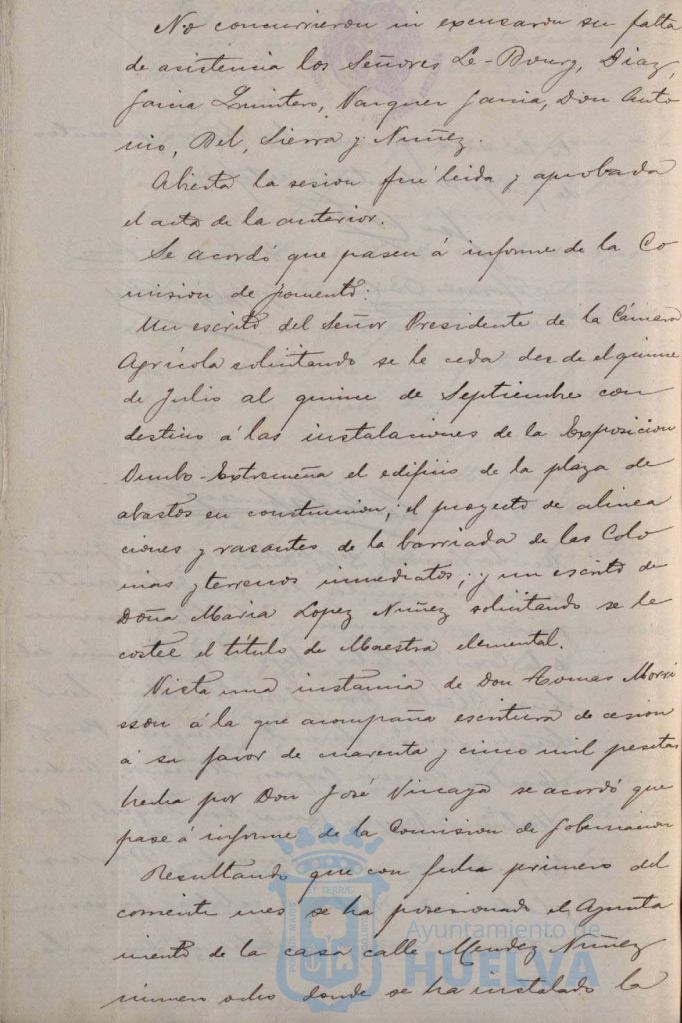 No concurrieron ni excusaron su falta
de asistencia los Señores Le-Bourg, Diaz,
Garcia Quintero, Vazquez Garcia, Don Anto
nio, Bel, Sierra y Nuñez.
Abierta la sesion fué leida y aprobada
el acta de la anterior.
Se acordó que pasen á informe de la Co
mision de fomento:
Un escrito del Señor Presidente de la Cámara
Agrícola solicitando se le ceda desde el quince
de Julio al quince de Septiembre con
destino á las instalaciones de la Exposicion
Onubo-Extremeña el edificio de la plaza de
abastos en construccion; el proyecto de alinea
ciones y rasantes de la barriada de las Colo
nias y terrenos inmediatos; y un escrito de
Doña Maria Lopez Nuñez solicitando se le
costee el título de Maestra elemental.
Vista una instancia de Don Tomas Morri
sson á la que acompaña escritura de cesion
á su favor de cuarenta y cinco mil pesetas
hecha por Don José Vizcaya se acordó que
pase á informe de la Comision de Gobernacion
Resultando que con fecha primero del
corriente mes se ha posesionado el Ayunta
miento de la casa calle Mendez Nuñez
número ocho donde se ha instalado la
Ayuntamiento de
HUELVA